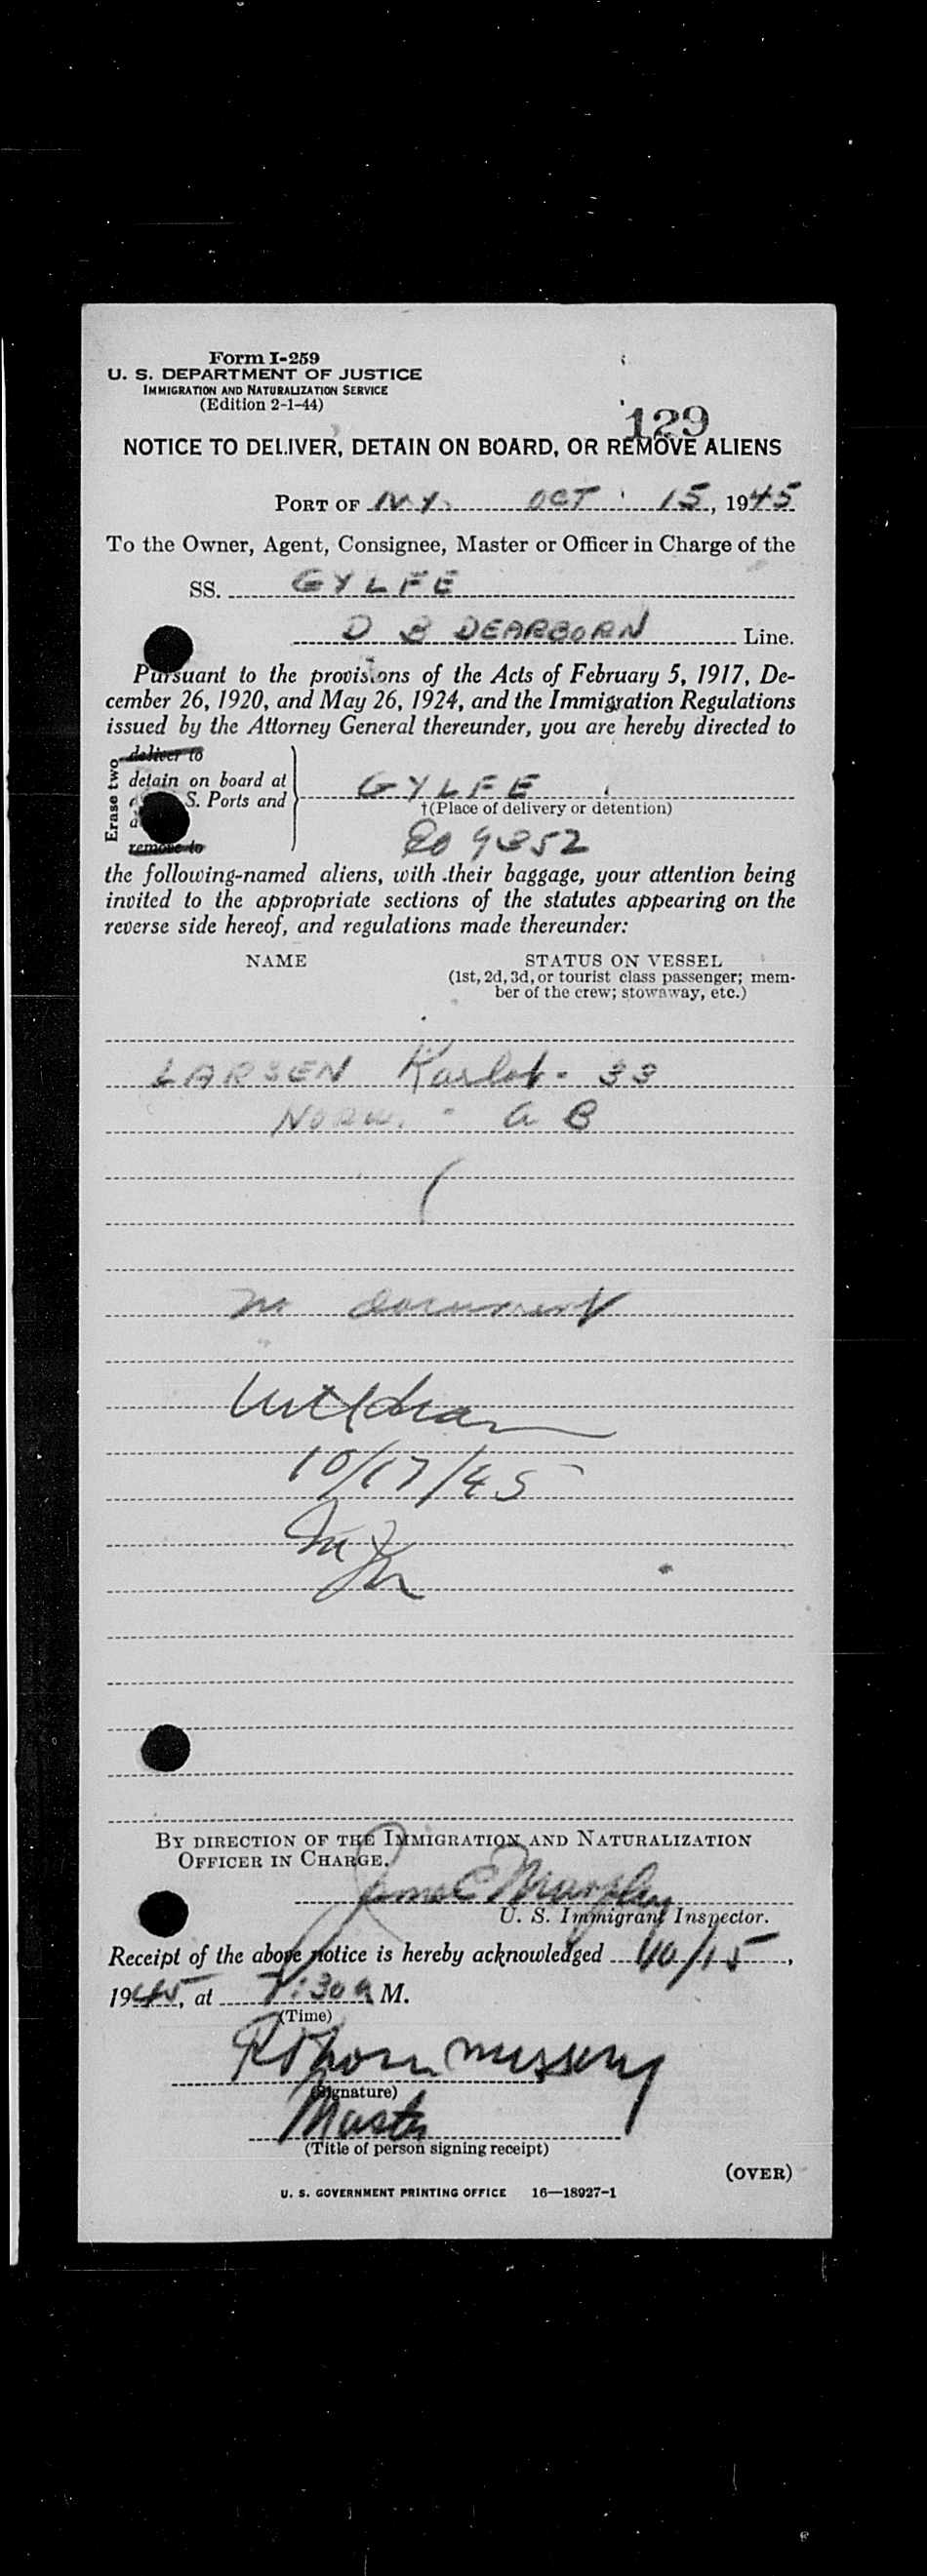 Form I-259
U. S. DEPARTMENT OF JUSTICE
IMMIGRATION AND NATURALIZATION SERVICE
(Edition 2-1-44)
129
NOTICE TO DELIVER, DETAIN ON BOARD, OR REMOVE ALIENS
PORT OF N.Y. OCT 15, 1945
To the Owner, Agent, Consignee, Master or Officer in Charge of the
SS. GYLFE
D B DEARBORN Line.
Pursuant to the provisions of the Acts of February 5, 1917, De-
cember 26, 1920, and May 26, 1924, and the Immigration Regulations
issued by the Attorney General thereunder, you are hereby directed to
Erase two
deliver to
detain on board at
S. Ports and
remove to
GYLFE
†(Place of delivery or detention)
9352
the following-named aliens, with their baggage, your attention being
invited to the appropriate sections of the statutes appearing on the
reverse side hereof, and regulations made thereunder:
NAME STATUS ON VESSEL
(1st, 2d, 3d, or tourist class passenger; mem-
ber of the crew; stowaway, etc.)
LARSEN 33
Norw. - A B
document
10/17/45
BY DIRECTION OF THE IMMIGRATION AND NATURALIZATION
OFFICER IN CHARGE.
U. S. Immigrant Inspector.
Receipt of the above notice is hereby acknowledged 10/15,
1945, at 7:30 a M.
(Time)
(Signature)
Master
(Title of person signing receipt)
(OVER)
U. S. GOVERNMENT PRINTING OFFICE 16—18927-1